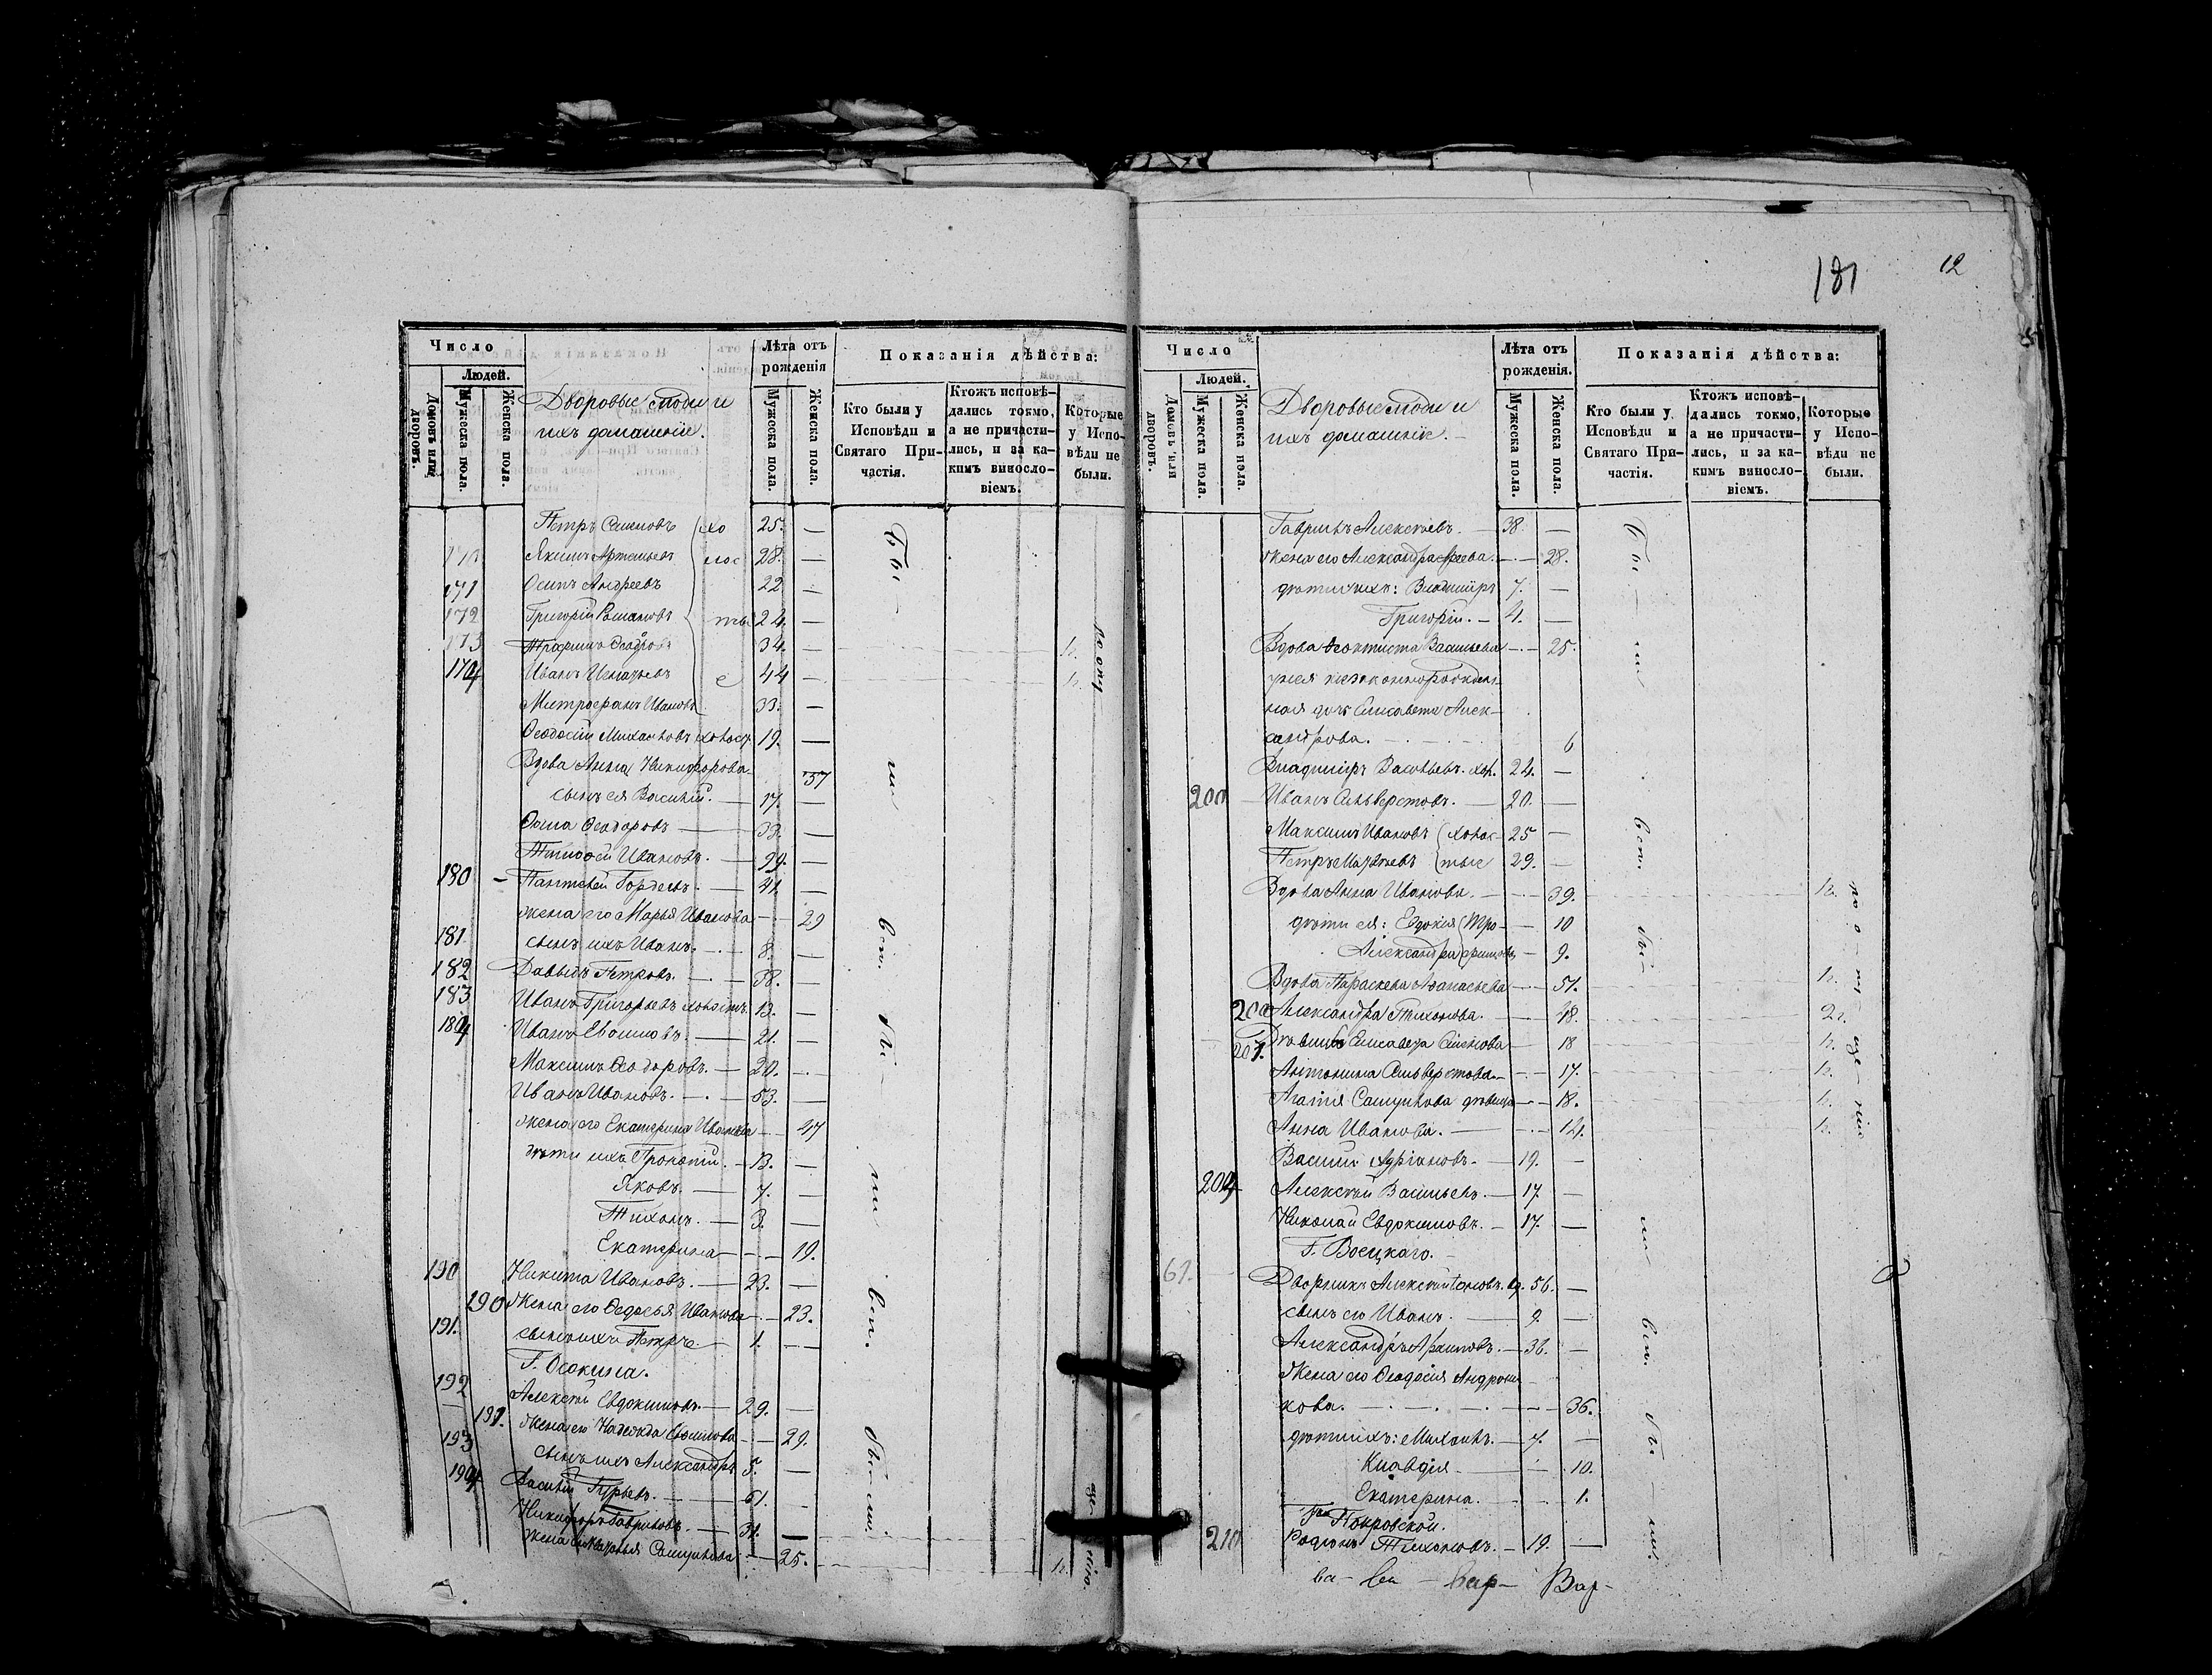 Число
Людей.
Домовъ или дворовъ.
Мужеска пола.
Женска пола.
Дворовые люди и
ихъ домашніе.
Лѣта отъ
рожденія
Мужеска пола.
Женска пола.
Показанія дѣйства:
Кто были у
Исповѣди и
Святаго При-
частія.
Ктожъ исповѣ-
дались токмо,
а не причасти-
лись, и за ка-
кимъ виносло-
віемъ.
Которые
у Испо-
вѣди не
были.
Петръ Семеновъ хо 25. —
Якимъ Артемьевъ лос 28. —
171 Осипъ Андреевъ 22 —
172 Григорій Романовъ ты 24. —
173 Трофимъ Ѳедоровъ 34. —
174 Иванъ Игнатьевъ е 44 —
Митрофанъ Ивановъ 33. —
Ѳеодосій Михайловъ холост 19. —
Вдова Анна Никифорова 37
сынъ ея Василій. — 17. —
Ѳома Ѳеодоровъ — 33. —
Тимоѳей Ивановъ. —
180 Пантелей Гордеевъ. — 41. —
жена его Марья Иванова — 29
181. сынъ ихъ Иванъ. — 8. —
182 Давыдъ Петровъ. — 38. —
183 Иванъ Григорьевъ холостъ. 13. —
184 Иванъ Евѳимовъ. — 21. —
Максимъ Ѳеодоровъ. — 20. —
Иванъ Ивановъ. — 53. —
жена его Екатерина Иванова — 47
дѣти ихъ Прокопій. — 13. —
Яковъ. — 7. —
Тихонъ. — 3. —
Екатерина — 19.
190 Никита Ивановъ. — 23. —
190 Жена его Ѳедосья Иванова — 23.
191. сынъ ихъ Петръ — 1. —
Г. Осокина.
192 Алексѣй Евдокимовъ. — 29. —
191. Жена его Надежда Евѳимова — 29.
193 сынъ ихъ Александръ 5. —
194 Василій Гурьевъ. — 61. —
Никифоръ Гавриловъ. — 31. —
жена его Марья Самуилова — 25.
Бы — ли вси. Бы — ли вси. Бы — ли.
181
12
Число
Людей.
Домовъ или дворовъ.
Мужеска пола.
Женска пола.
Дворовые люди и
ихъ домашніе. —
Лѣта отъ
рожденія.
Мужеска пола.
Женска пола.
Показанія дѣйства:
Кто были у
Исповѣди и
Святаго При-
частія.
Ктожъ исповѣ-
дались токмо,
а не причасти-
лись, и за ка-
кимъ виносло-
віемъ.
Которые
у Испо-
вѣди не
были.
Гаврилъ Алексѣевъ. 38. —
жена его Александра — 28.
дѣти ихъ: Владиміръ 7. —
Григорій. — 4. —
Вдова Ѳеоктиста Васильева — 25.
у нея незаконнорожден-
ная дочь Елисавета Алек-
сандрова. — 6
Владиміръ Васильевъ. хол. 24. —
200 Иванъ Сильверстовъ. — 20. —
Максимъ Ивановъ холос- 25 —
Петръ Матвѣевъ тые 29. —
Вдова Анна Иванова. — 39.
дѣти ея: Евдокія Тро- — 10
Александра фимовы — 9.
Вдова Параскева Аѳанасьева — 51.
200 Александра Тихонова. — 48.
201. Дѣвица Елисавета Семенова — 18
Антонина Сильверстова — 17.
Агаѳія Самуилова дѣвица — 18.
Анна Иванова. — 14.
Василій Адріановъ. — 19. —
204 Алексѣй Васильевъ. — 17. —
Николай Евдокимовъ. — 17. —
Г. Воецкаго. —
61. Дворникъ Алексѣй 56. —
сынъ его Иванъ. — 9. —
Александръ — 36. —
Жена его Ѳеодосія Андрони-
кова. — 36.
дѣти ихъ: Михаилъ. — 7. —
Клавдія — 10.
Екатерина. — 1.
Г-жи Покровской.
210 Родіонъ Тихоновъ. — 19. —
Бы — ли вси. Бы — ли вси. Бы — ли.
по о — пу — ще — нію
ва — Вар —